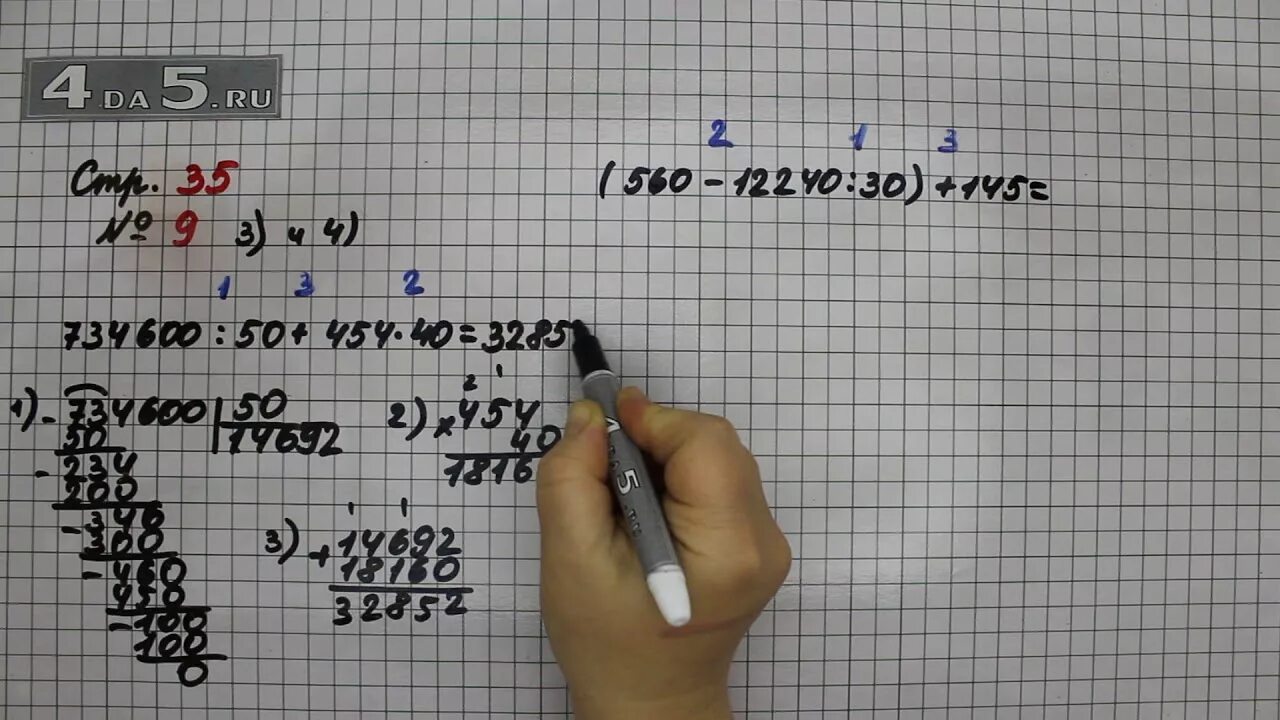 4DA5.RU
Стр. 35
№ 9 3) и 4)
1 3 2
734600 : 50 + 454 · 40 = 3285
1) - 734600 | 50
50 14692
- 234
200
- 346
300
- 460
450
- 100
100
0
2 1
2) × 454
40
1816
1 1
3) + 14692
18160
32852
2 1 3
(560 - 12240 : 30) + 145 =